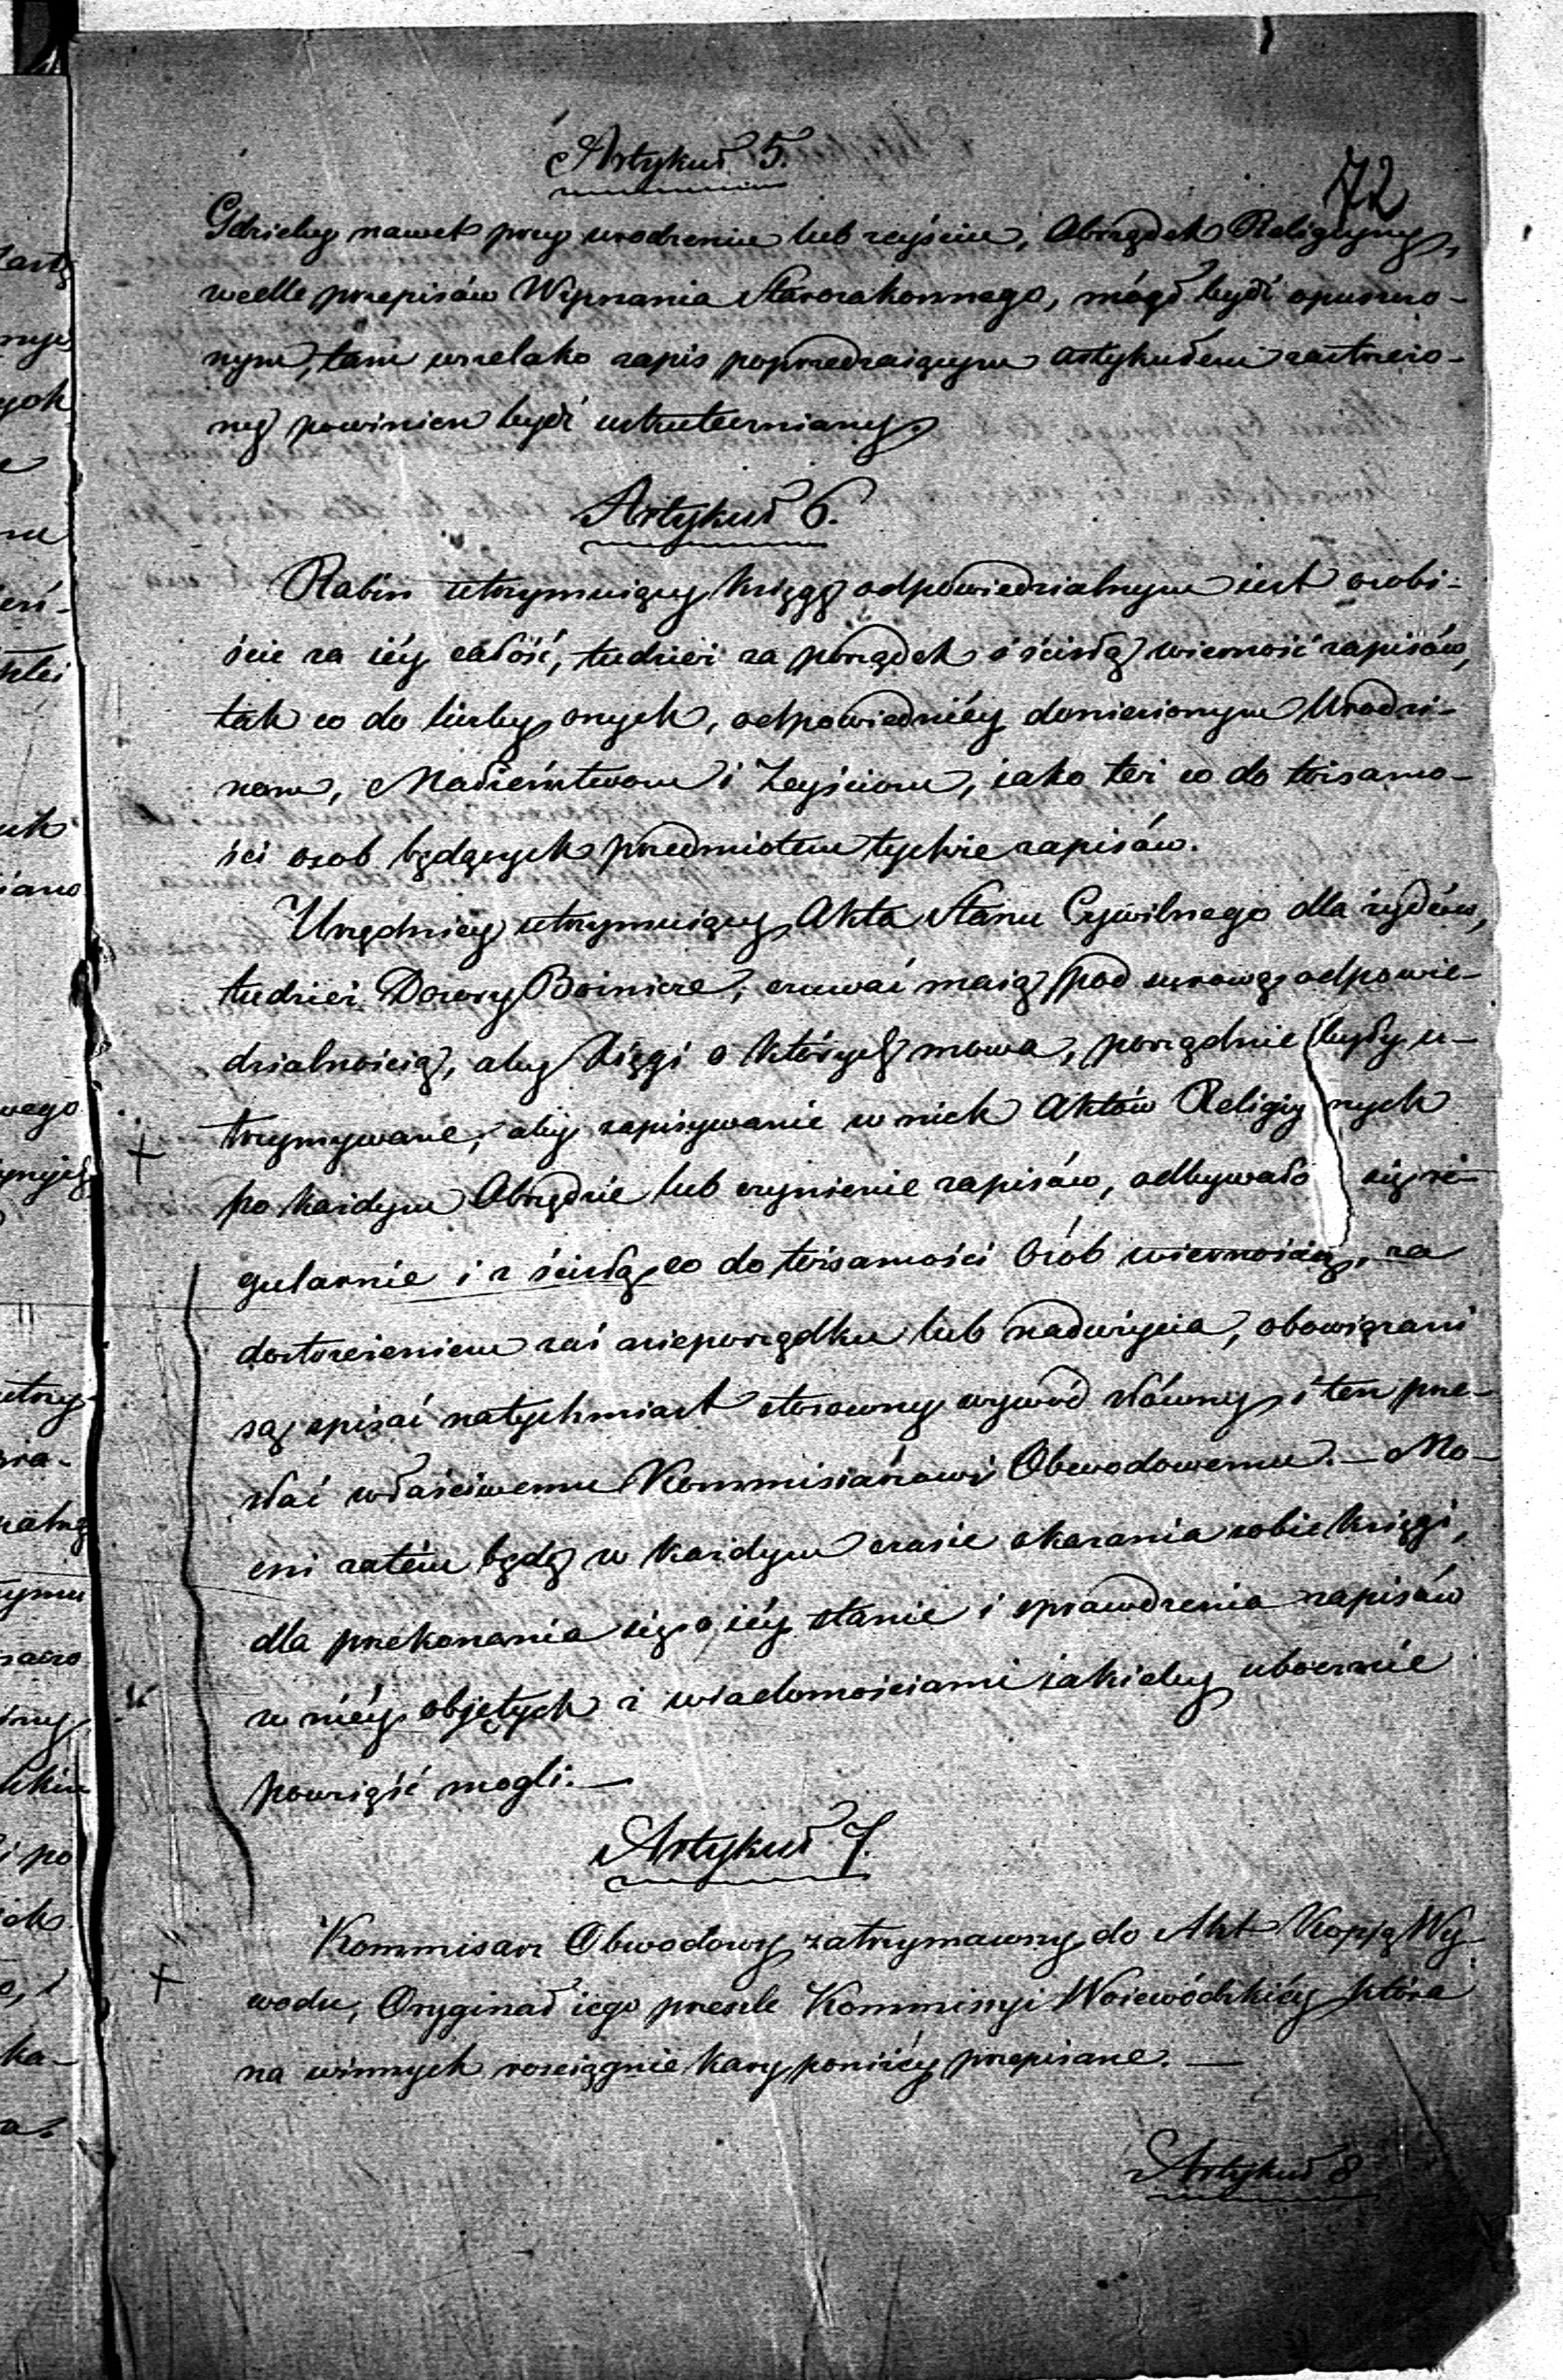 Artykuł 5.
72
Gdzieby nawet przy urodzeniu lub zeyściu, Obrządek Religiyny,
wedle przepisów Wyznania Starozakonnego, mógł bydź opuszczo-
nym, tam wszelako zapis poprzedzaiącym artykułem zastrzeżo-
ny powinien bydź uskuteczniany.
Artykuł 6.
Rabin utrzymuiący księgę odpowiedzialnym iest osobi-
ście za iéy całość, tudzież za porządek i ścisłą wierność zapisów,
tak co do liczby onych, odpowiednićy doniesionym Urodzi-
nom, Małżeństwom i Zeyściom, iako też co do tożsamo-
ści osob będących przedmiotem tychże zapisów.
Urzędnicy utrzymuiący Akta Stanu Cywilnego dla żydów,
tudzież Dozory Bożnicze, czuwać maią pod surową odpowie-
dzialnością, aby księgi o których mowa, porządnie były u-
trzymywane, aby zapisywanie w nich Aktów Religiynych
po każdym Obrzędzie lub czynienie zapisów, odbywało się re-
gularnie i z ścisłą co do tożsamości Osób wiernością, za
dostrzeżeniem zaś nieporządku lub nadużycia, obowiązani
są spisać natychmiast stosowny wywód słówny i ten prze-
słać właściwemu Kommisiarzowi Obwodowemu. — Mo-
cni zatém będą w każdym czasie okazania sobie księgi,
dla przekonania się o iéy stanie i sprawdzenia zapisów
w niéy objętych z wiadomościami iakieby ubocznie
powziąść mogli. —
Artykuł 7.
Kommisarz Obwodowy zatrzymawszy do Akt Kopją Wy-
wodu, Oryginał iego prześle Kommissyi Woiewódzkiéy która
na winnych rozciągnie kary poniżéy przepisane. —
Artykuł 8